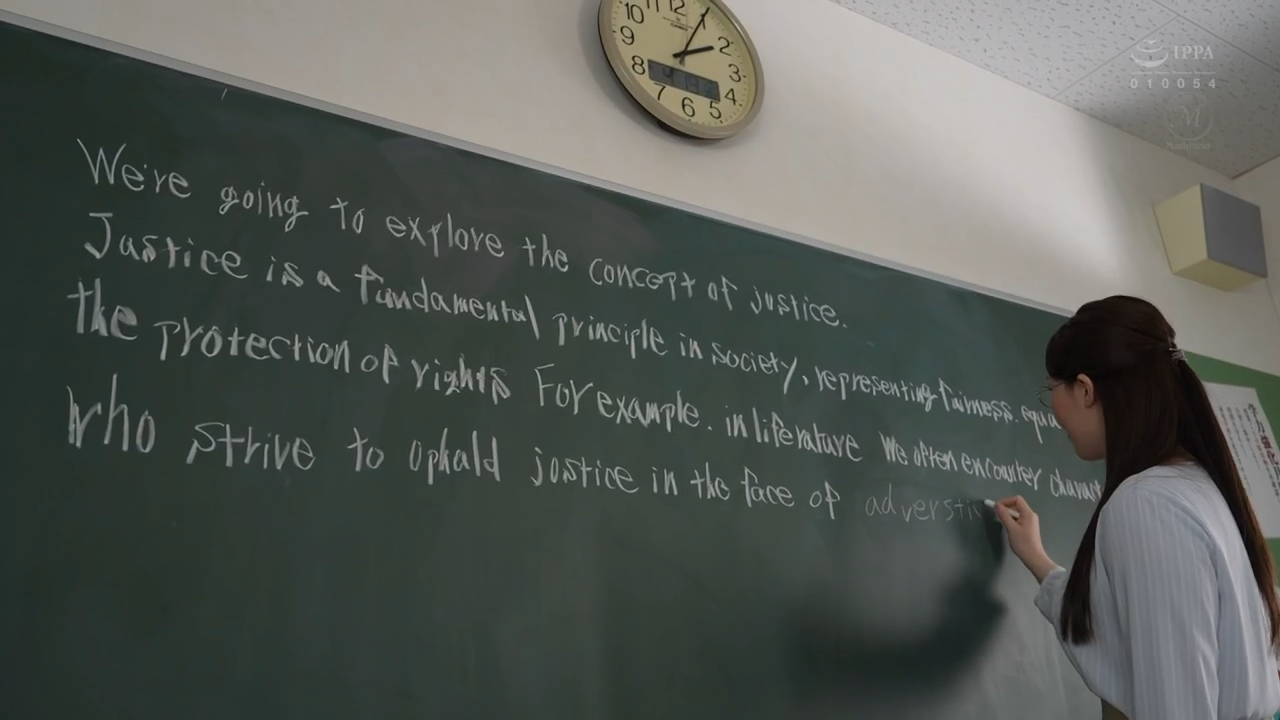 10 11 12 1 2 3 4 5 6 7 8 9
IPPA
010054
M
We're going to explore the concept of justice.
Justice is a fundamental principle in society, representing fairness. equa
the protection of rights For example. in literature We often encounter charact
who strive to ophald jostice in the face of adversti